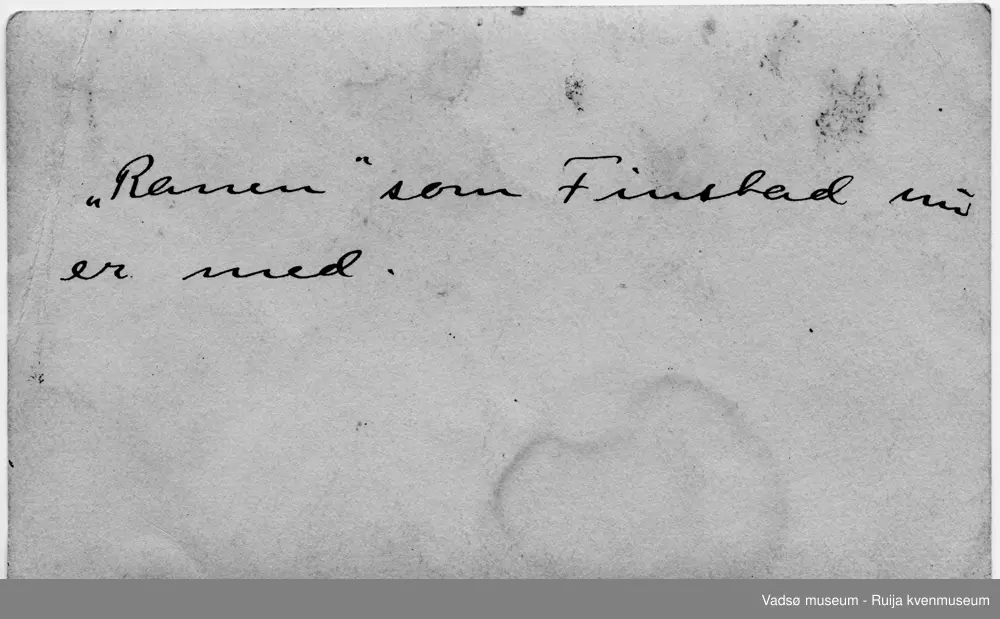 „Ranen“ som Finstad nu
er med.
Vadsø museum - Ruija kvenmuseum